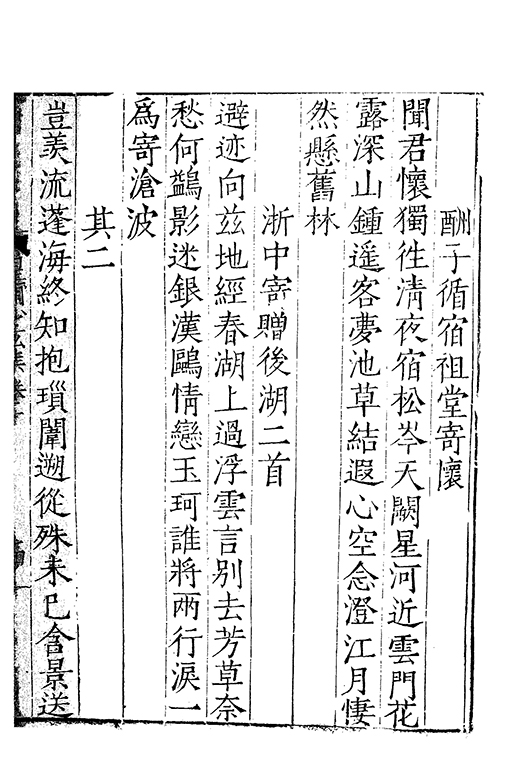 酬子循宿祖堂寄懷
聞君懷獨徃清夜宿松岑天闕星河近雲門花
露深山鍾遥客夢池草結遐心空念澄江月悽
然懸舊林
浙中寄贈後湖二首
避迹向兹地經春湖上過浮雲言别去芳草奈
愁何鷁影迷銀漢鷗情戀玉珂誰將兩行淚一
爲寄滄波
其二
豈羡流蓬海終知抱瑣闈遡從殊未已含景送